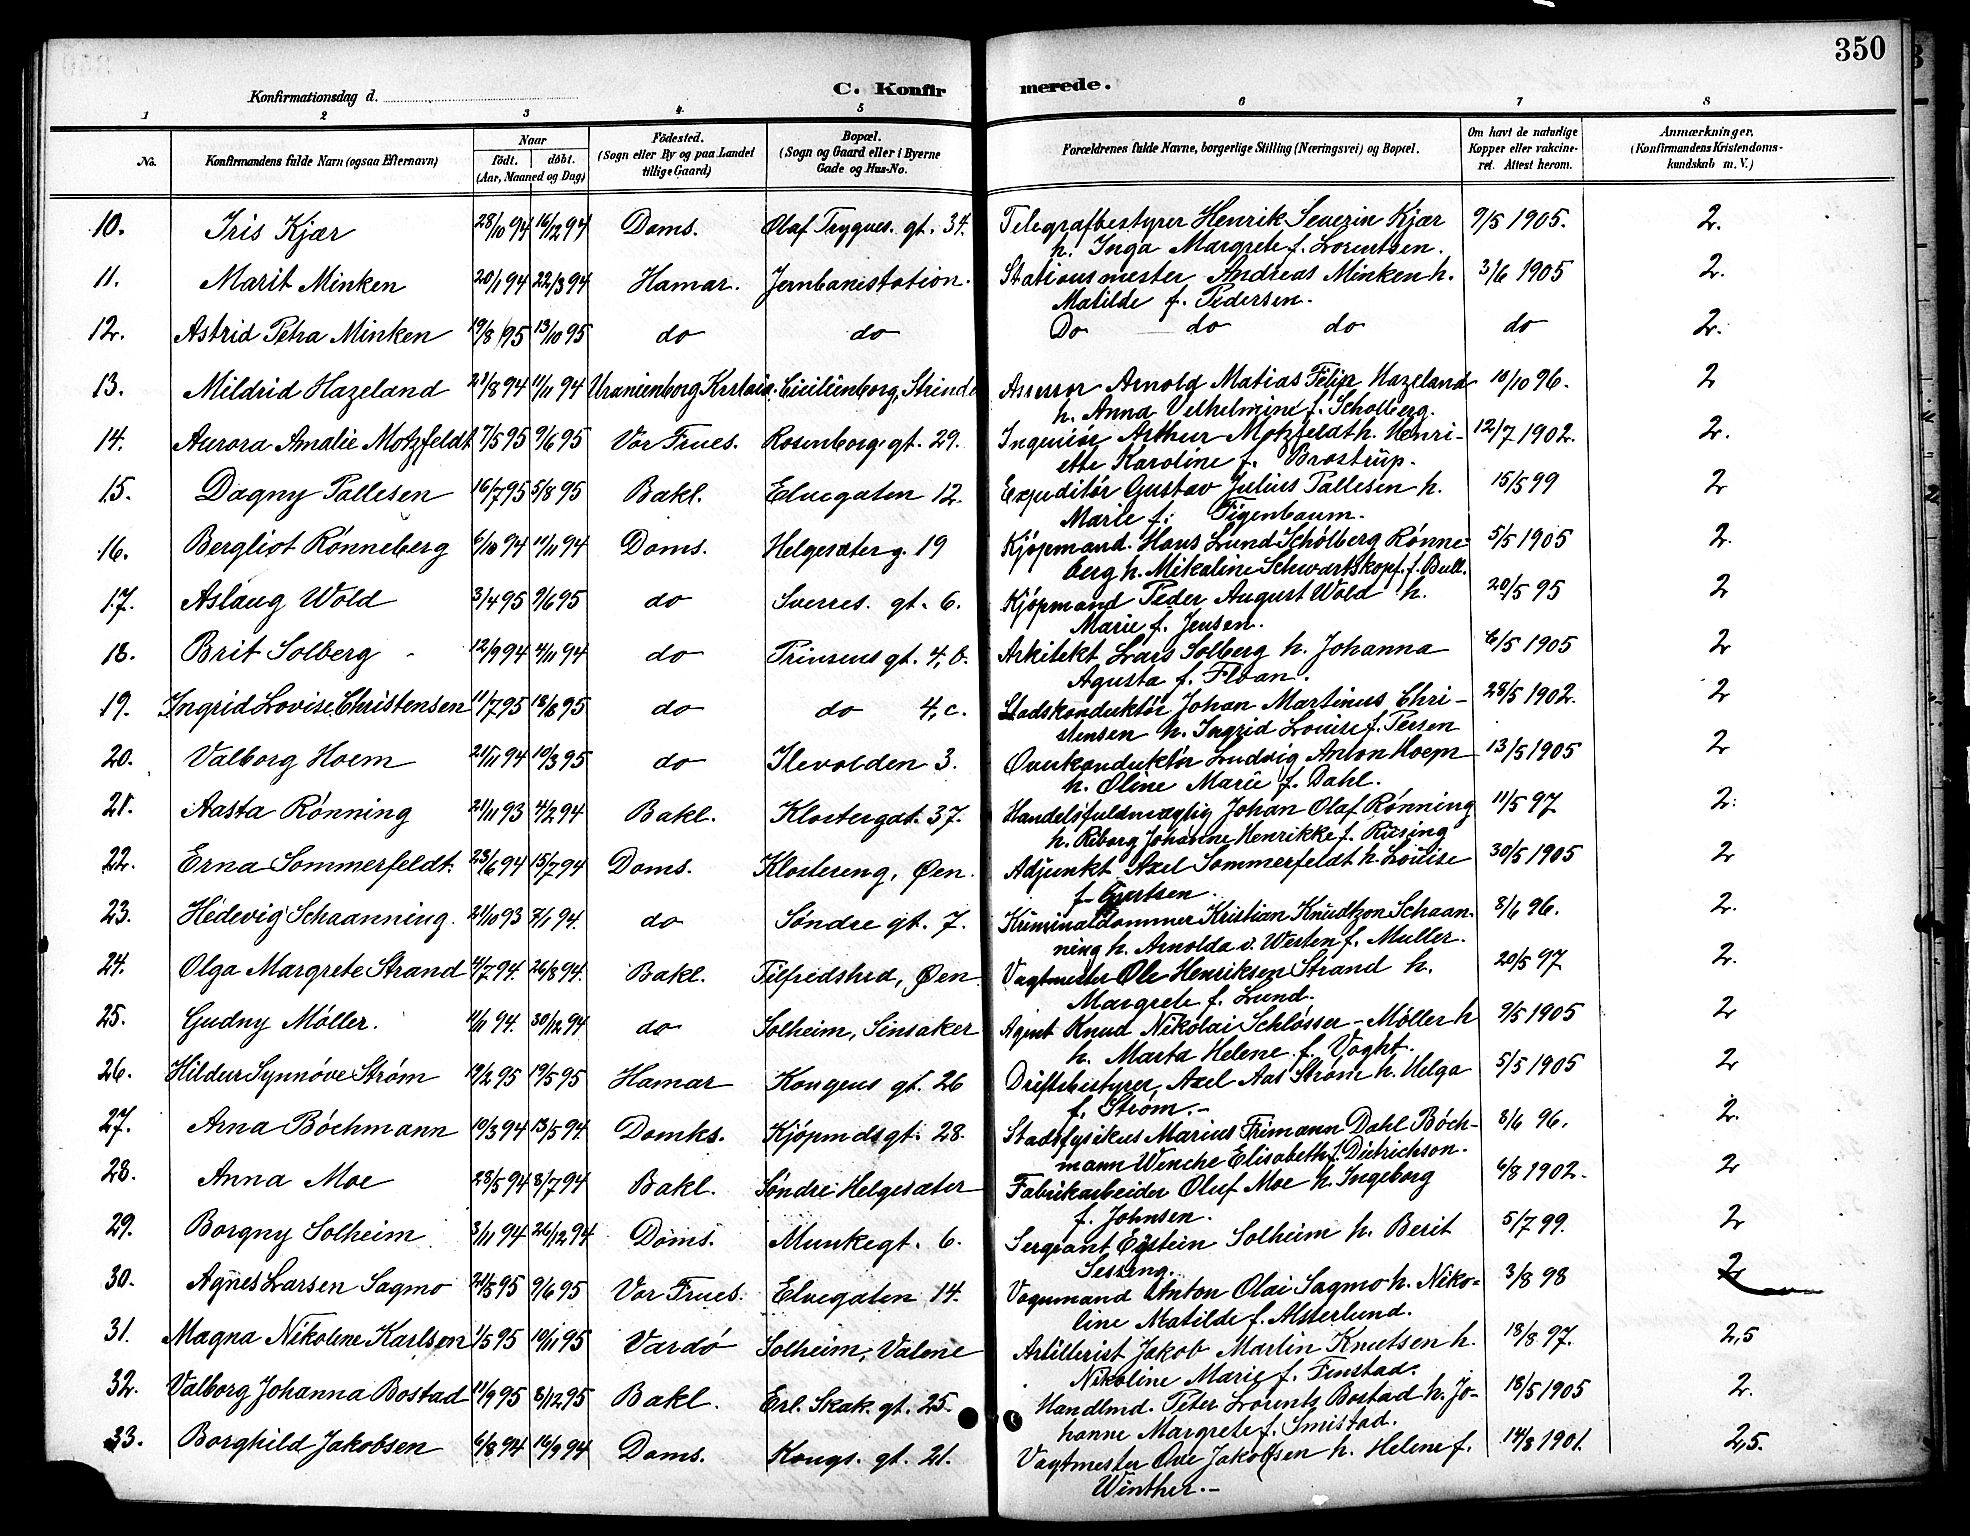 350
Konfirmationsdag d.
C. Konfirmerede.
1 2 3 4 5 6 7 8
No. Konfirmandens fulde Navn (ogsaa Efternavn) Naar født. døbt. (Aar, Maaned og Dag) Fødested. (Sogn eller By og paa Landet tillige Gaard) Bopæl. (Sogn og Gaard eller i Byerne Gade og Hus-No. Forældrenes fulde Navne, borgerlige Stilling (Næringsvei) og Bopæl. Om havt de naturlige Kopper eller vakcineret. Attest herom. Anmærkninger, (Konfirmandens Kristendomskundskab m. V.)
10. Iris Kjær 28/10 94 16/12 94 Doms. Olaf Trygves. gt. 34. Telegrafbestyrer Henrik Severin Kjær 9/5 1905. 2.
h. Inga Margrete f. Lorentsen.
11. Marit Minken 20/1 94 22/3 94 Hamar. Jernbanestation. Stationsmester Andreas Minken h. 3/6 1905 2.
Matilde f. Pedersen.
12. Astrid Petra Minken 19/8 95 13/10 95 do do Do do do do 2.
13. Mildrid Hazeland 21/8 94 11/11 94 Uranienborg Krstania. Ciciliënborg, Strinda Assessor Arnold Matias Filip Hazeland 10/10 96. 2
h. Anna Velhelmine f. Scholberg.
14. Aurora Amalie Motzfeldt 7/5 95 9/6 95 Vor Frues. Rosenborg gt. 29. Ingeniør Arthur Motzfeldt h. Henri- 12/7 1902. 2.
ette Karoline f. Brostrup.
15. Dagny Pallesen 16/7 95 5/8 95 Bakl. Elvegaten 12. Expeditør Gustav Julius Pallesen h. 15/5 99 2
Marie f. Figenbaum.
16. Bergliot Rønneberg 6/10 94 11/11 94 Doms. Helgesæter g. 19 Kjøpmand. Hans Lund Schølberg Rønne- 5/5 1905 2.
berg h. Mikaline Schwartskopf. f. Bull.
17. Aslaug Wold 3/4 95 9/6 95 do Sverres. gt. 6. Kjøpmand Peder August Wold h. 20/5 95 2
Marie f. Jensen.
18. Brit Solberg 12/9 94 4/11 94 do Prinsens gt. 4, b. Arkitekt Lars Solberg h. Johanna 6/5 1905 2
Agusta f. Floan.
19. Ingrid Lovise Christensen 11/7 95 18/8 95 do do 4, c. Stadskonduktør Johan Martinus Chri- 28/5 1902. 2
stensen h. Ingrid Louise f. Persen
20. Valborg Hoem 21/11 94 10/3 95 do Ilevolden 3. Overkonduktør Ludvig Anton Hoem 13/5 1905 2
h. Oline Marie f. Dahl.
21. Aasta Rønning 21/11 93 4/2 94 Bakl. Klostergat. 37. Handelsfuldmægtig Johan Olaf Rønning 11/5 97 2.
h. Riborg Johanne Henrikke f. Riising
22. Erna Sommerfeldt. 23/6 94 15/7 94 Doms. Klostereng, Øen. Adjunkt Axel Sommerfeldt h. Louise 30/5 1905 2
23. Hedevig Schaanning. 21/10 93 7/1 94. do Søndre gt. 7. Kriminaldommer Kristian Knudtzon Schaan- 8/6 96. 2.
ning h. Arnolda v. Westen f. Muller.
24. Olga Margrete Strand 4/7 94. 26/8 94. Bakl. Tilfredshed, Øen Vagtmester Ole Henriksen Strand h. 20/5 97 2.
Margrete f. Lund.
25. Gudny Møller. 11/11 94. 30/12 94 do Solheim, Sinsaker Agent Knud Nikolai Schløsser-Møller h 9/5 1905 2
h. Marta Helene f. Voght.
26. Hildur Synnøve Strøm 19/2 95 19/5 95 Hamar Kongens gt. 26 Driftsbestyrer, Axel Aas Strøm h. Helga 5/5 1905 2
f. Strøm.-
27. Arna Bøchmann 10/3 94 13/5 94. Domks. Kjøpmdsgt. 28. Stadsfysikus Marius Frimann Dahl Bøch- 8/6 96. 2.
mann Wenche Elisabeth f. Dietrichson.
28. Anna Moe 28/5 94 8/7 94 Bakl. Søndre Helgesæter Fabrikarbeider Oluf Moe h. Ingeborg 6/8 1902. 2
f. Johnsen.
29. Borgny Solheim 3/11 94 26/12 94 Doms. Munkegt. 6. Sergeant Eistein Solheim h. Berit 5/7 99. 2
Sesseng.
30. Agnes Larsen Sagmo 21/5 95 9/6 95 Vor Frues. Elvegaten 14. Vognmand Anton Olai Sagmo h. Niko- 3/8 98 2
line Matilde f. Alsterlund.
31. Magna Nikolene Karlsen 1/5 95 10/11 95 Vardø Solheim, Valene Artillerist Jakob Martin Knutsen h. 18/8 97. 2,5
Nikoline Marie f. Finstad.
32. Valborg Johanna Bostad 11/9 95 8/12 95 Bakl. Erl. Skak. gt. 25. Handlmd. Peter Lorents Bostad h. Jo- 18/5 1905 2.
hanne Margrete f. Smistad.
33. Borghild Jakobsen 6/8 94 16/9 94 Doms. Kongs. gt. 21. Vagtmester Ove Jakobsen h. Helene f. 14/8 1901. 2,5.
Winther.-